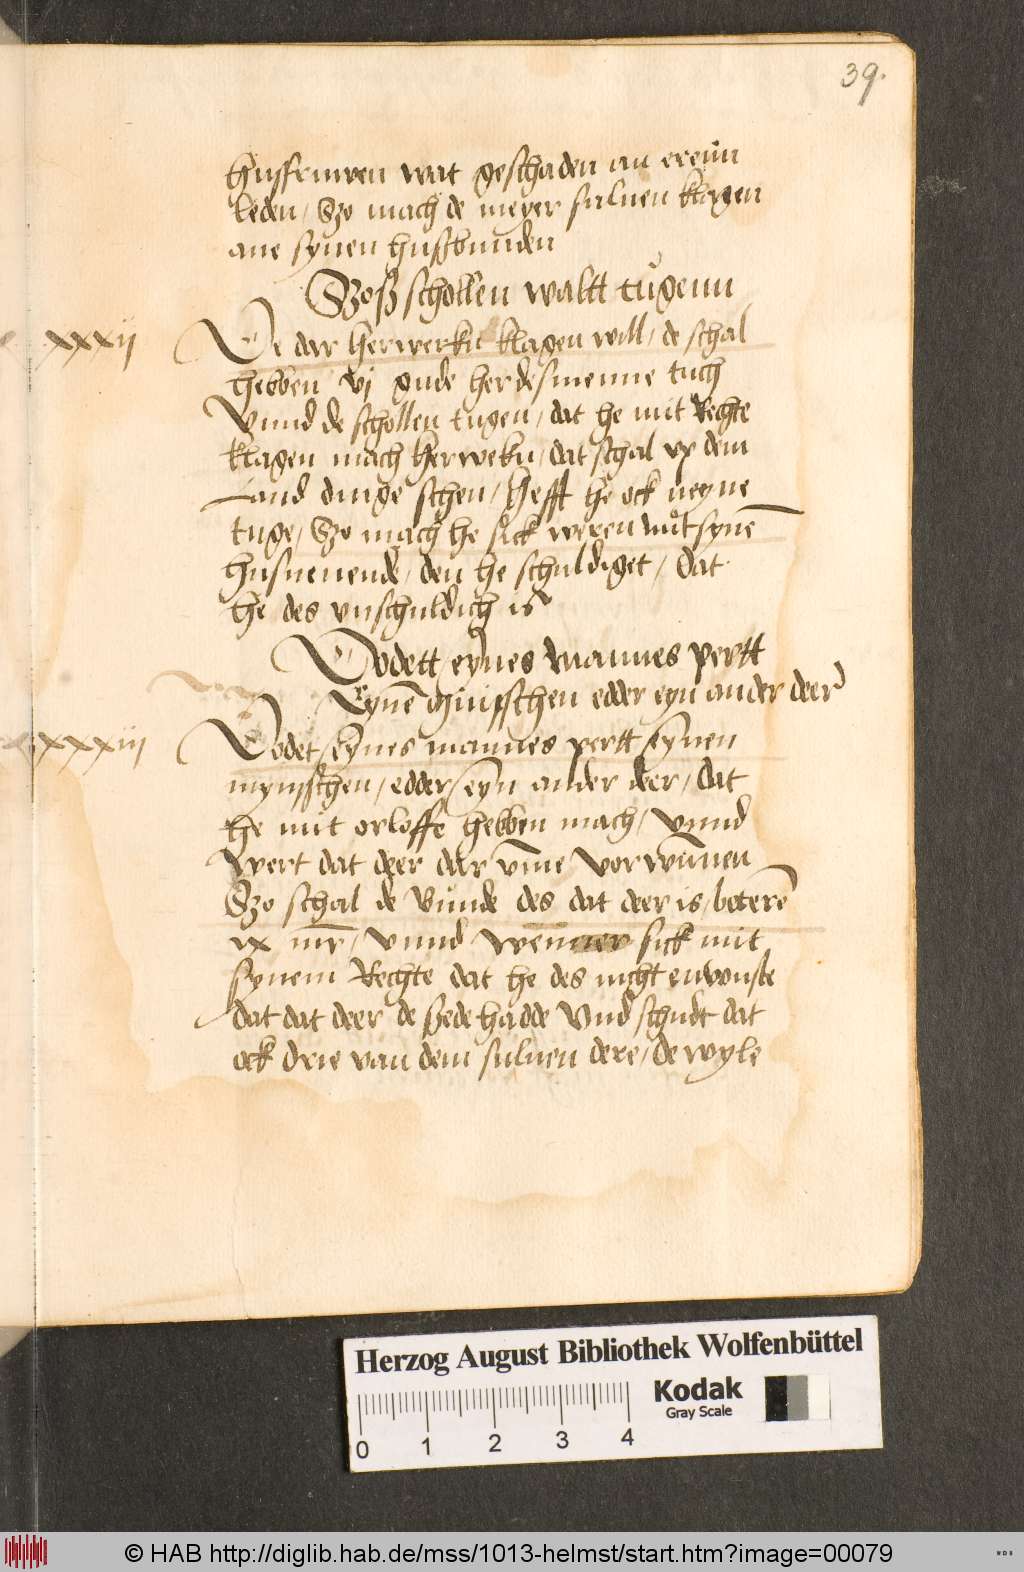 39.
husfruwen wat geschaden an ereun
leden / Szo mach de meyer suluen klagen
ane synen husbunden
Szoß schollen waltt tůgenn
xxxii De dar herwerkn klagen will / de schal
hebben vj gude herdesmenne tuch
Vnnd de schollen tugen / dat he mit Rechte
klagen mach herwekn / dat schal vp dem
Land dinge schen / Hefft he ock neyne
tuge / Szo mach he sick weren mit synē
husneuende / den he schuldiget / dat
he des vnschuldich is
Dodett eynes mannes pertt
Eynē minsschen edder eyn ander deer
xxxiii Dodet eynes mannes pertt eynen
mynsschen / edder / eyn ander deer / dat
he mit orloffe hebben mach / Vnnd
wert dat deer dar vmē vorwūnen
Szo schal de Bunde des dat deer is / beterē
ix mr̄ / Vnnd wenner sick mit
synem Rechte dat he des nicht enwuste
dat dat deer de szede hadde Vnd schudt dat
ock drie van dem suluen dere / de wyle
Herzog August Bibliothek Wolfenbüttel
Kodak
Gray Scale
0 1 2 3 4
© HAB http://diglib.hab.de/mss/1013-helmst/start.htm?image=00079